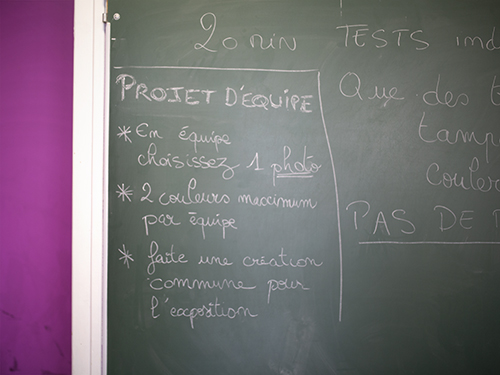 20 min
PROJET D'EQUIPE
* En équipe
choisissez 1 photo
* 2 couleurs maximum
par équipe
* faite une création
commune pour
l'exposition
TESTS ind
Que des t
tamp
couleu
PAS DE